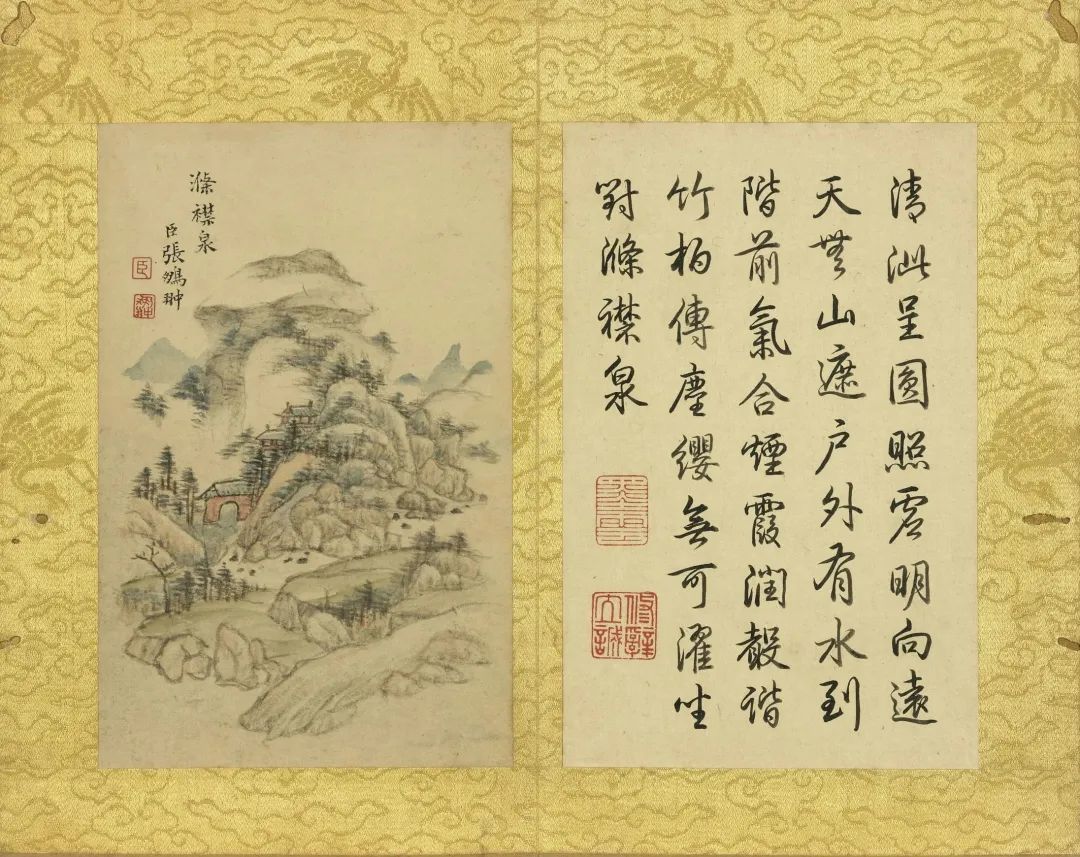 清泚呈圓照虛明向遠
天無山遮戶外有水到
階前氣合煙霞潤聲諧
竹柏傳塵纓無可濯坐
對滌襟泉
修辭立誠
滌襟泉
臣張鵬翀
臣